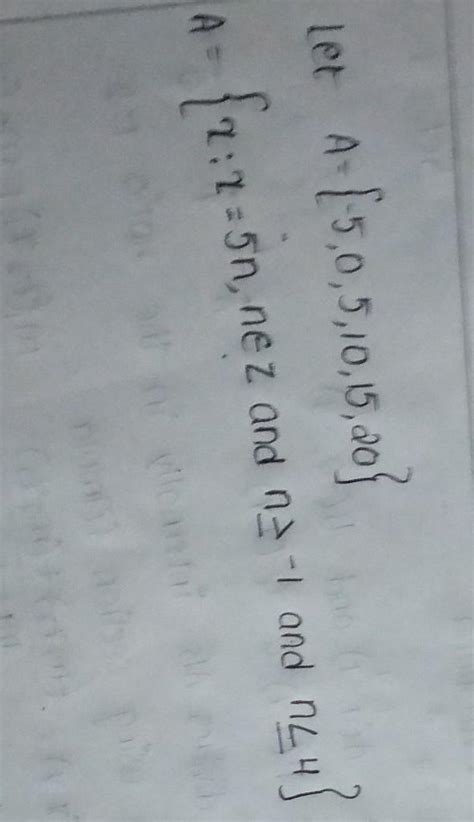 Let A={-5,0,5,10,15,20}
A = {x:x=5n, n∈Z and n≥ -1 and n≤4}